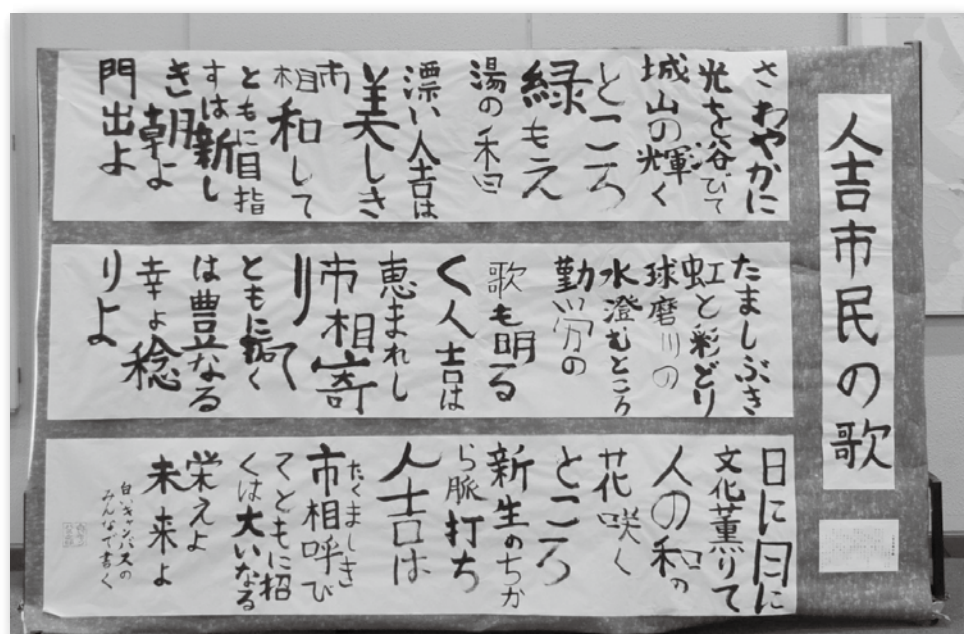 人吉市民の歌
さわやかに
光を浴びて
城山の輝く
ところ
緑もえ
湯の香
漂い人吉は
美しき
市
相和して
ともに目指
すは新し
き朝よ
門出よ
たましぶき
虹と彩どり
球磨川の
水澄むところ
勤労の
歌も明る
く人吉は
恵まれし
市相寄
りて
ともに拓く
は豊なる
幸よ稔
りよ
日に日に
文化薫りて
人の和の
花咲く
ところ
新生のちか
ら脈打ち
人吉は
たくましき
市相呼び
てともに招
くは大いなる
栄えよ
未来よ
白いキャンバスの
みんなで書く